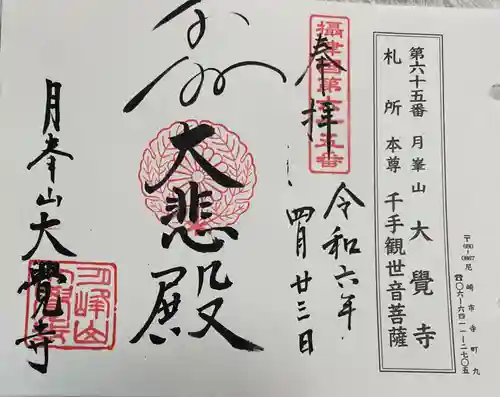 第六十五番 月峯山 大覺寺
札所本尊 千手観世音菩薩
〒660-0867 尼崎市寺町九
☎〇六-六四一一-二七〇五
奉拝
令和六年
四月廿三日
大悲殿
月峯山大覺寺